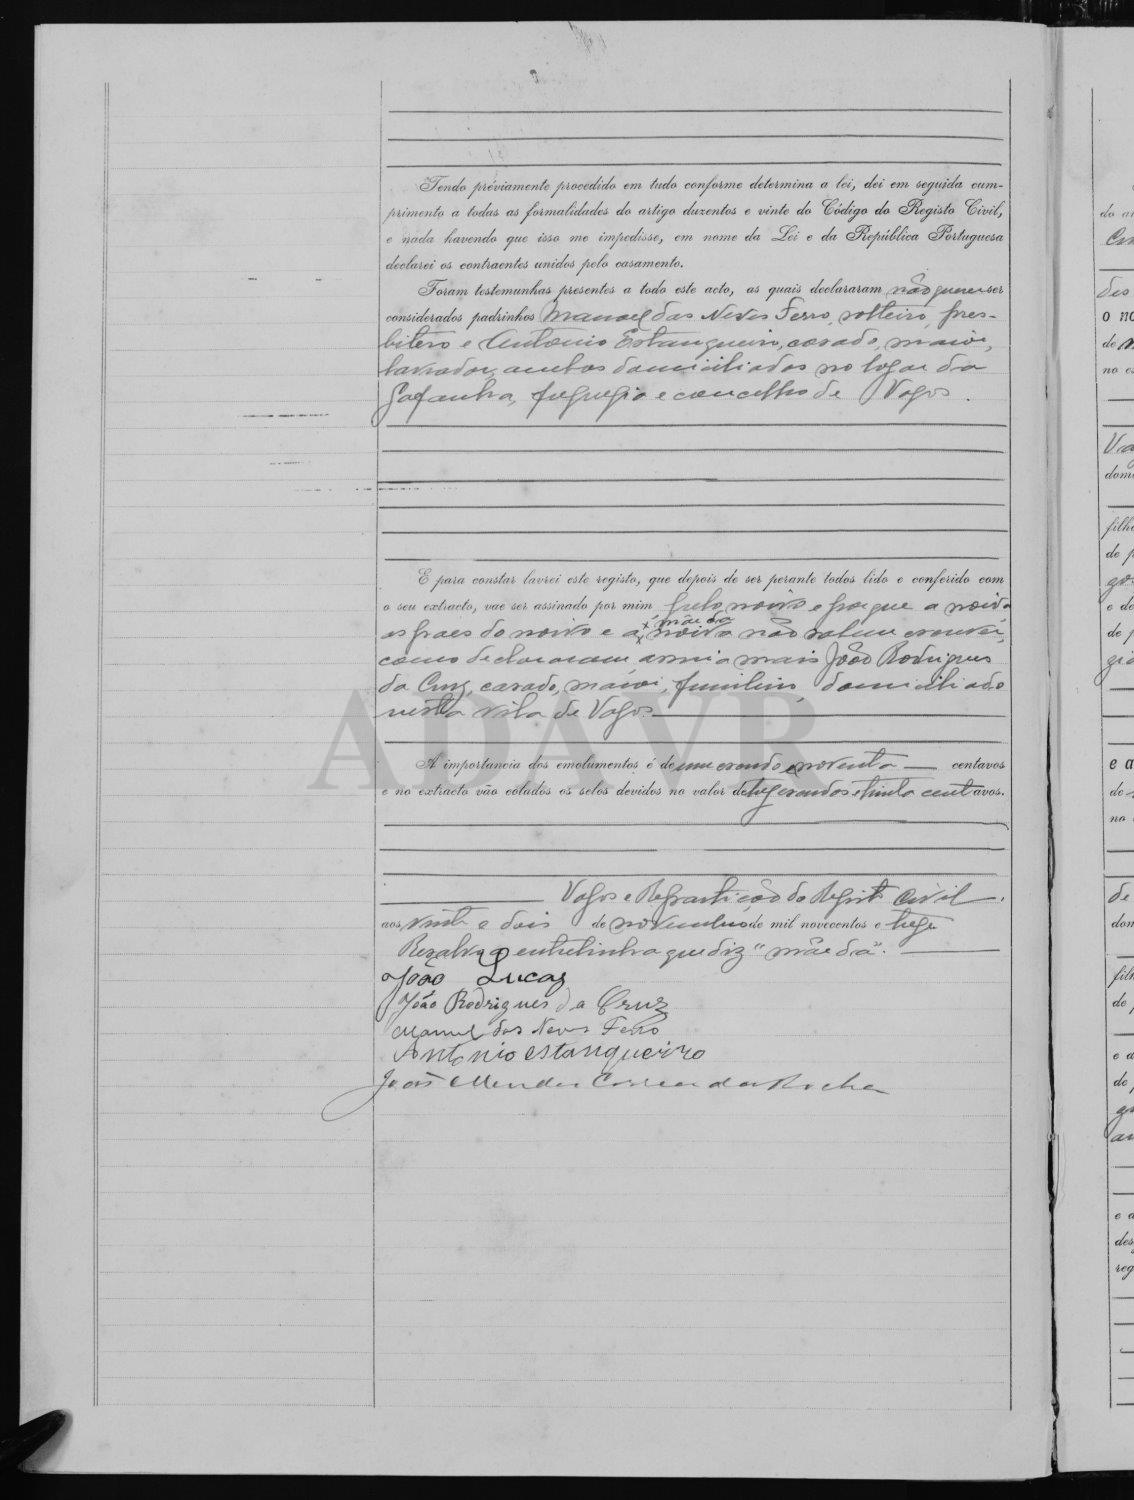 Tendo préviamente procedido em tudo conforme determina a lei, dei em seguida cum-
primento a todas as formalidades do artigo duzentos e vinte do Código do Registo Civil,
e nada havendo que isso me impedisse, em nome da Lei e da República Portuguesa
declarei os contraentes unidos pelo casamento.
Foram testemunhas presentes a todo este acto, as quais declararam não querer ser
considerados padrinhos Manoel das Neves Ferro, solteiro, pres-
bitero e Antonio Estanqueiro, casado, maior,
lavrador, ambos domiciliados no logar da
Gafanha, freguesia e concelho de Vagos.
E para constar lavrei este registo, que depois de ser perante todos lido e conferido com
o seu extracto, vae ser assinado por mim pelo noivo e porque a noiva
os paes do noivo e a mãe da noiva não sabem escrever,
como declararam, assina mais João Rodrigues
da Cruz, casado, maior, domiciliado
nesta vila de Vagos
ADAVR
A importancia dos emolumentos é de um escudo e noventa centavos
e no extracto vão colados os selos devidos no valor de tres escudos e trinta centavos.
Vagos e Repartição do Registo Civil
aos vinte e dois de novembro de mil novecentos e treze
Resalvo a entrelinha que diz "mãe da".
João Lucas
João Rodrigues da Cruz
Manuel das Neves Ferro
Antonio estanqueirro
João Mendes Correa da Rocha